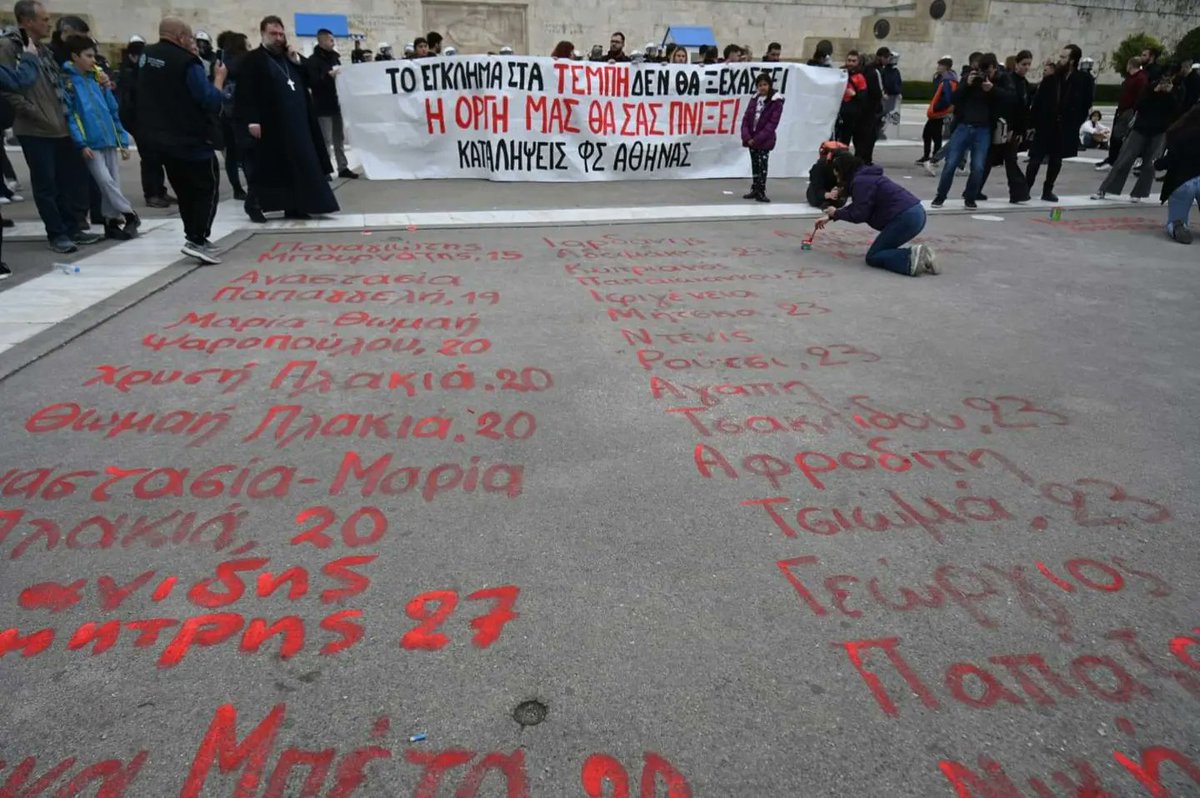 ΤΟ ΕΓΚΛΗΜΑ ΣΤΑ ΤΕΜΠΗ ΔΕΝ ΘΑ ΞΕΧΑΣΤΕΙ
Η ΟΡΓΗ ΜΑΣ ΘΑ ΣΑΣ ΠΝΙΞΕΙ
ΚΑΤΑΛΗΨΕΙΣ ΦΣ ΑΘΗΝΑΣ
Παναγιώτης
Μπουρνάζης, 15
Αναστασία
Παπαγγελή, 19
Μαρία-Θωμαή
Ψαροπούλου, 20
Χρυσή Πλακιά, 20
Θωμαή Πλακιά, 20
αστασία-Μαρία
Πλακιά, 20
ανίδης
μήτρης 27
Μπέτα
Ιορδάνης
Αδαμάκης, 23
Κυπριανός
Παπαϊωάννου, 23
Ιφιγένεια
Μήτσκα, 23
Ντένις
Ρούτσι, 23
Αγάπη
Τσακλίδου, 23
Αφροδίτη
Τσιωμά, 23
Γεώργιος